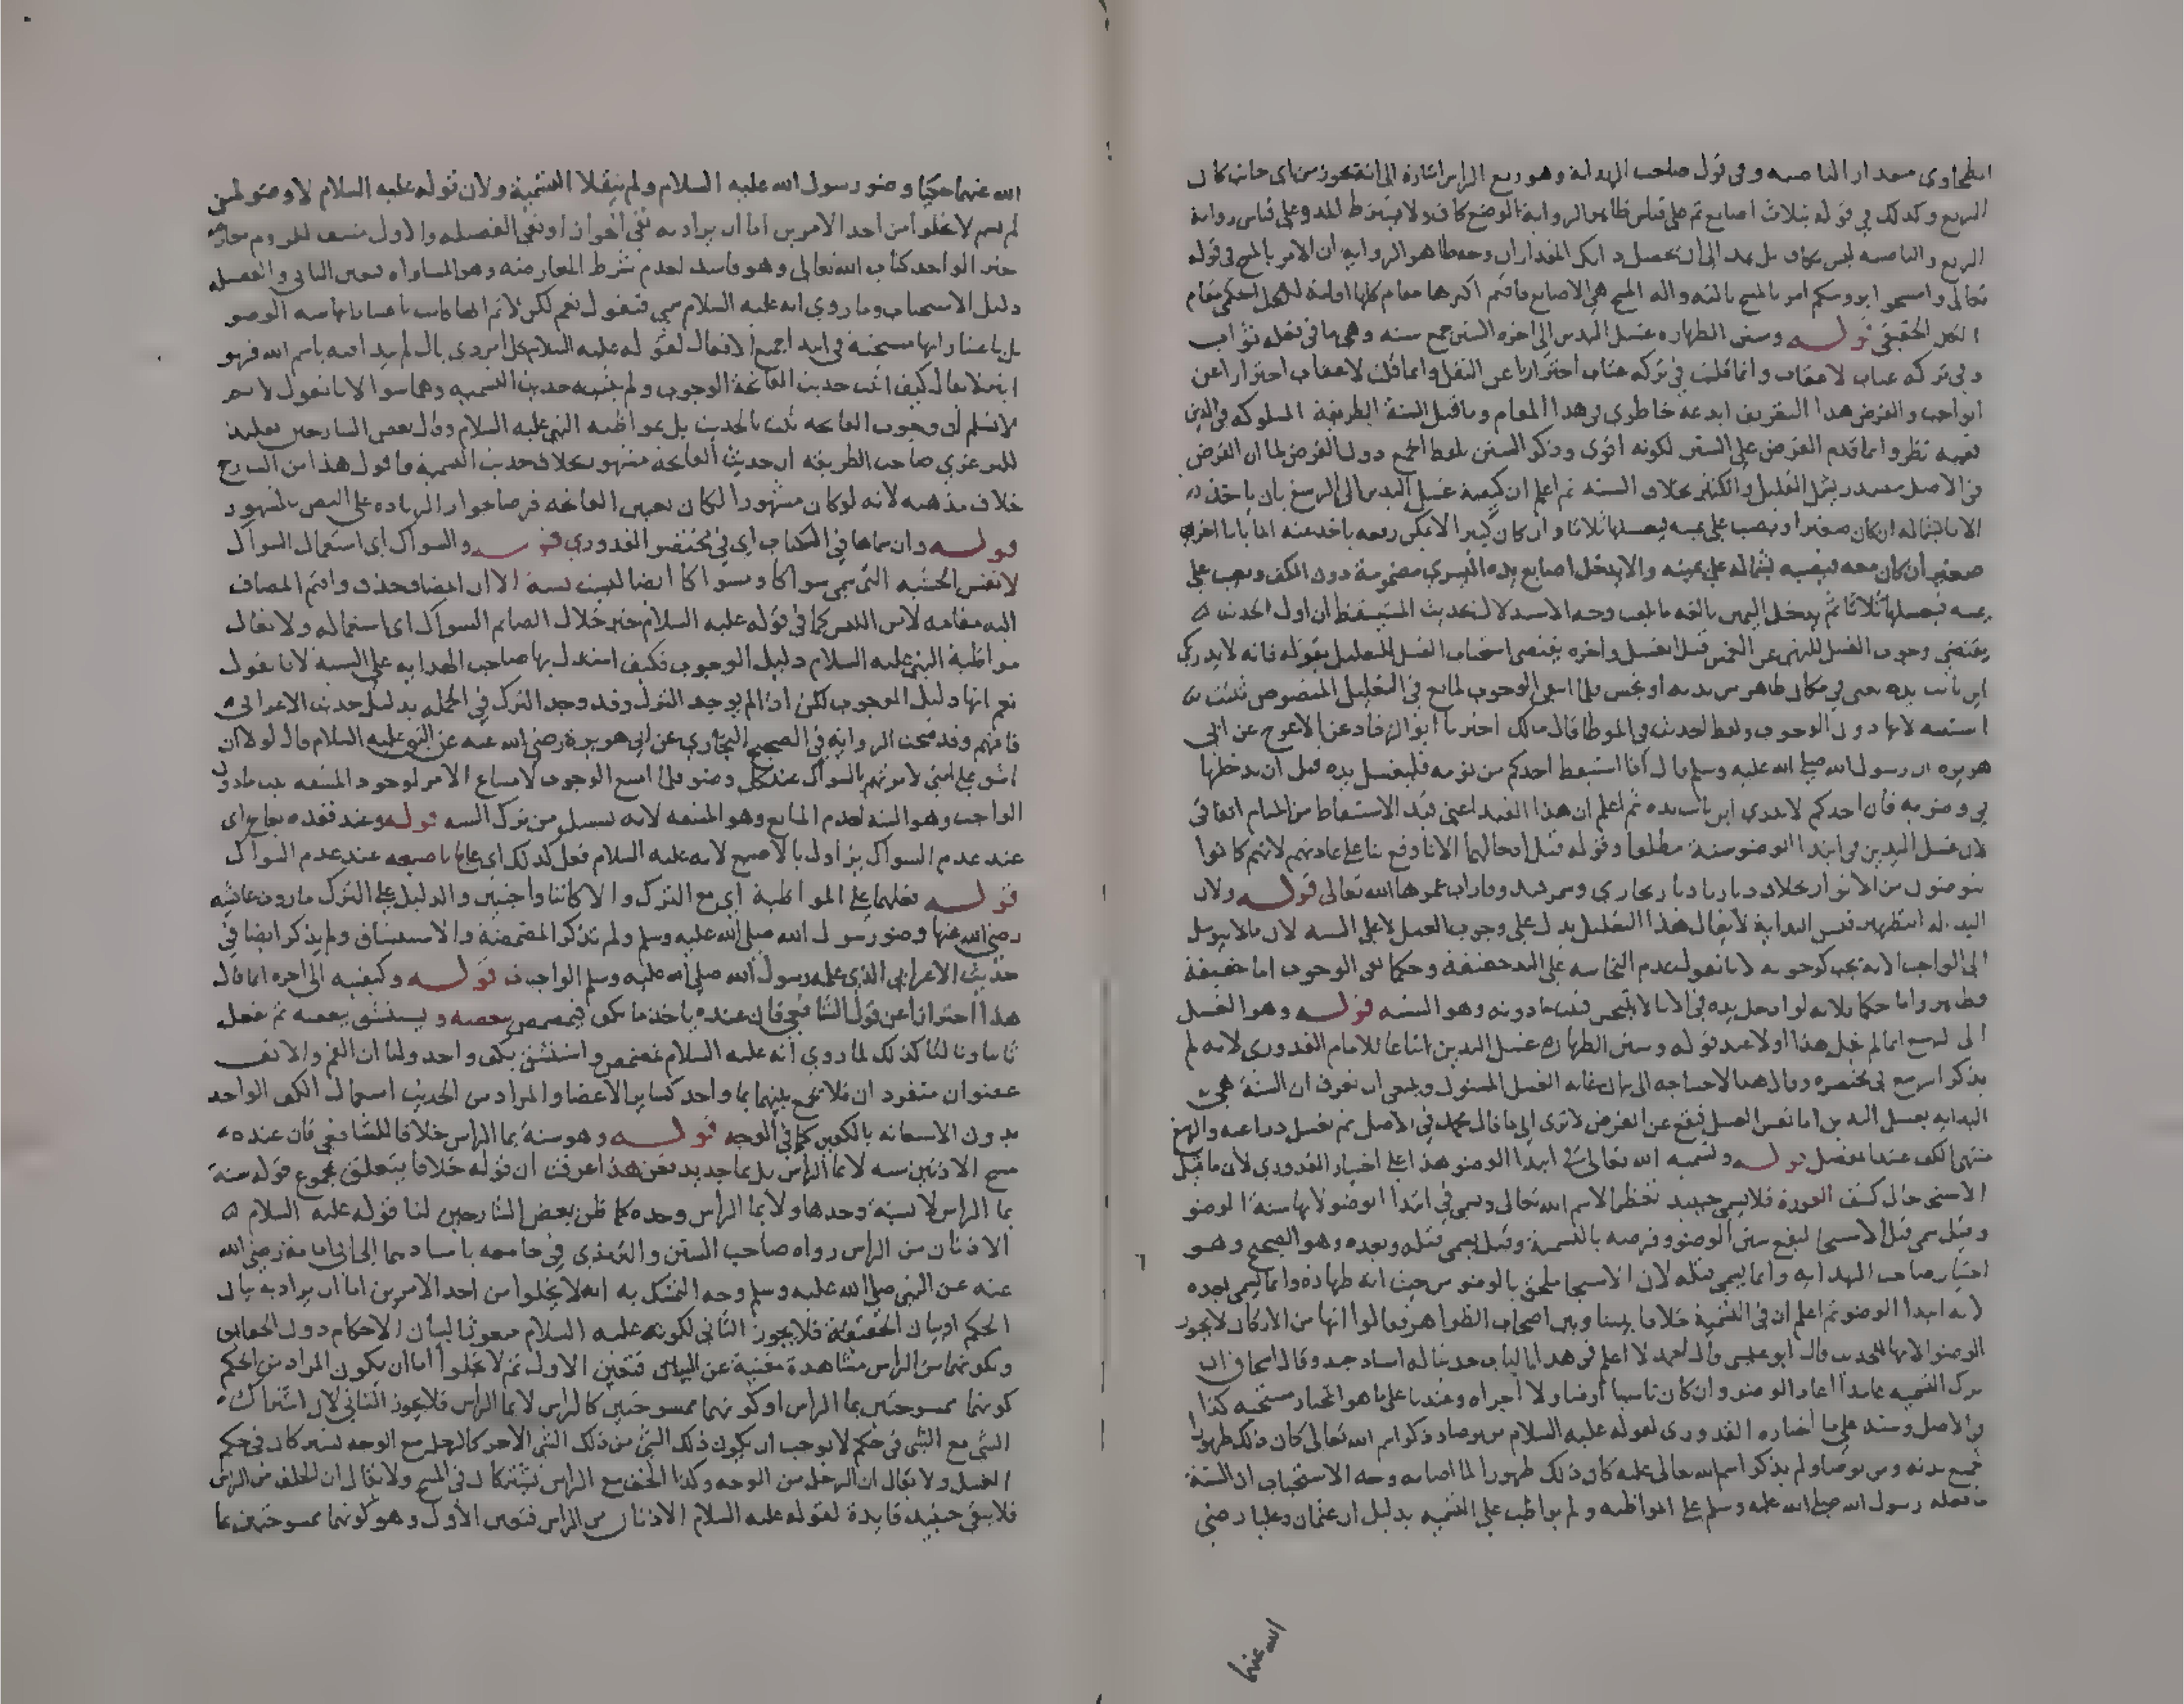 الطحاوي مقدار الناصية وفي قول صاحب الهداية وهو ربع الراس اشارة الى انه يجوز من اي جانب كان
الربع وكذلك في قوله بثلاث اصابع ثم على قياس ظاهر الرواية الوضع كاف ولا يشترط المد وعلى قياس رواية
الربع والناصية ليس بكاف بل يمد الى ان يحصل ذلك المقدار ان وجه ظاهر الرواية ان الامر بالمسح في قوله
تعالى وامسحوا برؤسكم امر بالمسح بالته واله المسح هي الاصابع فاقيم اكثرها مقام كلها اقامة للكل الحكمي مقام
الكل الحقيقي قوله وسنن الطهارة غسل اليدين الى اخره السنن جمع سنة وهي ما في فعله ثواب
وفي تركه عتاب لا عقاب وانما قلت في تركه عتاب احترازا عن النفل وانما قلت لا عقاب احترازا عن
الواجب والفرض هذا التعريف ابدعه خاطري في هذا المقام وما قيل السنة الطريقة المسلوكة في الدين
ففيه نظر وانما قدم الفرض على السنن لكونه اقوى وذكر السنن بلفظ الجمع دون الفرض لما ان الفرض
في الاصل مصدر يشمل القليل والكثير بخلاف السنة ثم اعلم ان كيفية غسل اليدين الى الرسغ بان ياخذ
الاناء بشماله ان كان صغيرا ويصب على يمينه فيغسلها ثلاثا وان كان كبيرا لا يمكن رفعه ياخذ منه الماء باناء اخر
صغير ان كان معه فيصبه بشماله على يمينه والا يدخل اصابع يده اليسرى مضمومة دون الكف ويصب على
يمينه فيغسلها ثلاثا ثم يدخل اليمين بالغة ما بلغت وجه الاستدلال بحديث المستيقظ ان اول الحديث
يقتضي وجوب الغسل للنهي عن الغمس قبل الغسل واخره يقتضي استحباب الغسل للتعليل بقوله فانه لا يدري
اين باتت يده يعني في مكان طاهر من بدنه او نجس فلما انتفى الوجوب لمانع في التعليل المنصوص ثبتت
السنية لانها دون الوجوب ولفظ الحديث في الموطا قال مالك اخبرنا ابو الزناد عن الاعرج عن ابي
هريرة ان رسول الله صلى الله عليه وسلم قال اذا استيقظ احدكم من نومه فليغسل يده قبل ان يدخلها
في وضوءه فان احدكم لا يدري اين باتت يده ثم اعلم ان هذا القيد اعني قيد الاستيقاظ من المنام اتفاقي
لان غسل اليدين في ابتدا الوضو سنة مطلقا وقوله قبل ادخالهما الاناء وقع بناء على عادتهم لانهم كانوا
يتوضئون من الاتوار بخلاف ديارنا ديار بخارى وسمرقند وفاراب عمرها الله تعالى قوله ولان
اليد اله التطهير فتسن البداية لا يقال هذا التعليل يدل على وجوب الغسل لا على السنة لان ما لا يتوصل
الى الواجب الا به يجب كوجوبه لانا نقول عدم النجاسة على اليد حقيقة وحكما نفى الوجوب اما حقيقة
فظاهر واما حكما فلانه لو ادخل يده في الاناء لا يتنجس فثبت ما دونه وهو السنة قوله وهو الغسل
الى الرسغ انما لم يقل هذا اولا عند قوله وسنن الطهارة غسل اليدين اتباعا للامام القدوري لانه لم
يذكر الرسغ في مختصره وقال هنا لاحتياجه الى بيان غاية الغسل المسنون وينبغي ان تعرف ان السنة هي
البداية بغسل اليدين اما نفس الغسل فيقع عن الفرض لا ترى الى ما قال محمد في الاصل ثم يغسل ذراعيه والرسغ
منتهى الكف عند المفصل قوله وتسمية الله تعالى في ابتدا الوضو هذا على اختيار القدوري لان ما قبل
الاستنجا حال كشف العورة فلا يسمي حينئذ تعظيما لاسم الله تعالى ويسمي في ابتدا الوضو لانها سنة الوضو
وقيل يسمي قبل الاستنجا ليقع سنن الوضو وفرضه بالتسمية وقيل يسمي قبله وبعده وهو الصحيح وهو
اختيار صاحب الهداية وانما يسمي قبله لان الاستنجا ملحق بالوضو من حيث انه طهارة وانما يسمي بعده
لانه ابتدا الوضو ثم اعلم ان في التسمية خلافا بيننا وبين اصحاب الظواهر فقالوا انها من الاركان لا يجوز
الوضو الا بها للحديث قال ابو عيسى قال احمد لا اعلم في هذا الباب حديثا له اسناد جيد وقال اسحاق ان
ترك التسمية عامدا اعاد الوضو وان كان ناسيا او متاولا اجزاه وعندنا على ما هو المختار مستحبة كذا
في الاصل وسنة على ما اختاره القدوري لقوله عليه السلام من توضا وذكر اسم الله تعالى كان ذلك طهورا
لجميع بدنه ومن توضا ولم يذكر اسم الله تعالى عليه كان ذلك طهورا لما اصابه وجه الاستحباب ان السنة
ما فعله رسول الله صلى الله عليه وسلم على المواظبة ولم يواظب على التسمية بدليل ان عثمان وعليا رضي
الله عنهما
الله عنهما حكيا وضو رسول الله عليه السلام ولم ينقلا التسمية ولان قوله عليه السلام لا وضو لمن
لم يسم لا يخلوا من احد الامرين اما ان يراد به نفي الجواز او نفي الفضيلة والاول منتف للزوم معارضة
خبر الواحد كتاب الله تعالى وهو فاسد لعدم شرط المعارضة وهو المساواه فتعين الثاني والفضيلة
دليل الاستحباب وما روي انه عليه السلام سمى فنقول نعم لكن لا نم انها كانت باعتبار انها سنة الوضو
بل باعتبار انها مستحبة في ابتدا جميع الافعال لقوله عليه السلام كل امر ذي بال لم يبدا فيه باسم الله فهو
ابتر لا يقال كيف اثبت حديث الفاتحة الوجوب ولم يثبته حديث التسمية وهما سوا لانا نقول لا نم
لا نسلم ان وجوب الفاتحة ثبت بالحديث بل بمواظبة النبي عليه السلام وقال بعض الشارحين تقليدا
للبرغري صاحب الطريقة ان حديث الفاتحة مشهور بخلاف حديث التسمية فاقول هذا من الشارح
خلاف مذهبه لانه لو كان مشهورا لكان تعيين الفاتحة فرضا لجواز الزيادة على النص بالمشهور
قوله وان سماها في الكتاب اي في مختصر القدوري قوله والسواك اي استعمال السواك
لا نفس الخشبة التي تسمى سواكا ومسواكا ايضا ليست بسنة الا ان المضاف حذف واقيم المضاف
اليه مقامه لامن اللبس كما في قوله عليه السلام خير خلال الصائم السواك اي استعماله ولا يقال
مواظبة النبي عليه السلام دليل الوجوب فكيف استدل بها صاحب الهداية على السنة لانا نقول
نعم انها دليل الوجوب لكن اذا لم يوجد الترك وقد وجد الترك في الجملة بدليل حديث الاعرابي
فافهم وقد صحت الرواية في الصحيح البخاري عن ابي هريرة رضي الله عنه عن النبي عليه السلام قال لولا ان
اشق على امتي لامرتهم بالسواك عند كل وضو فلما امتنع الوجوب لامتناع الامر لوجود المشقة ثبت ما دون
الواجب وهو السنة لعدم المانع وهو المشقة لانه بسبيل من ترك السنة قوله وعند فقده يعالج اي
عند عدم السواك يزاول بالاصبع لانه عليه السلام فعل كذلك اي عالج باصبعه عند عدم السواك
قوله فعلهما على المواظبة اي مع الترك والا كانتا واجبتين والدليل على الترك ما روت عائشة
رضي الله عنها وضو رسول الله صلى الله عليه وسلم ولم تذكر المضمضة والاستنشاق ولم يذكر ايضا في
حديث الاعرابي الذي علمه رسول الله صلى الله عليه وسلم الواجبات قوله وكيفيته الى اخره انما قال
هذا احترازا عن قول الشافعي فان عنده ياخذ ماء بكف فيمضمض ببعضه ويستنشق ببعضه ثم يفعل
ثانيا وثالثا كذلك لما روي انه عليه السلام تمضمض واستنشق بكف واحد ولنا ان الفم والانف
عضوان منفردان فلا يجمع بينهما بماء واحد كساير الاعضا والمراد من الحديث استعمال الكف الواحد
بدون الاستعانة بالكفين كما في الوجه قوله وهو سنة بما الراس خلافا للشافعي فان عنده
مسح الاذنين سنة لا بما الراس بل بما جديد فعن هذا عرفت ان قوله خلافا يتعلق بمجموع قوله سنة
بما الراس لا بسنة وحدها ولا بما الراس وحده كما ظن بعض الشارحين لنا قوله عليه السلام
الاذنان من الراس رواه صاحب السنن والترمذي في جامعه باسنادهما الى ابي امامة رضي الله
عنه عن النبي صلى الله عليه وسلم وجه التمسك به انه لا يخلوا من احد الامرين اما ان يراد به بيان
الحكم او بيان الحقيقة فلا يجوز الثاني لكونه عليه السلام مبعوثا لبيان الاحكام دون الحقايق
وكونهما من الراس مشاهدة مغنية عن البيان فتعين الاول ثم لا يخلوا اما ان يكون المراد من الحكم
كونهما ممسوحتين بما الراس او كونهما ممسوحتين كالراس لا بما الراس فلا يجوز الثاني لان اشتراك
الشي مع الشي في حكم لا يوجب ان يكون ذلك الشي من ذلك الشي الاخر كالرجل مع الوجه يشتركان في حكم
الغسل ولا يقال ان الرجل من الوجه وكذا الخف مع الراس يشتركان في المسح ولا يقال ان الخف من الراس
فلا يبقى حينئذ فايدة لقوله عليه السلام الاذنان من الراس فتعين الاول وهو كونهما ممسوحتين بما